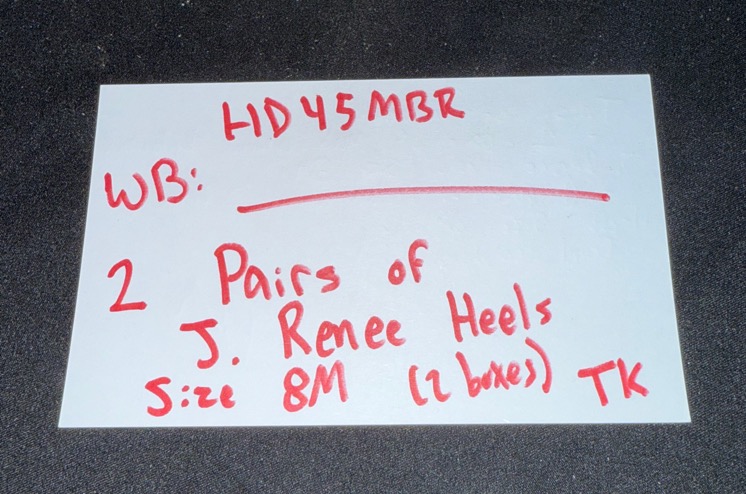 HD45MBR
WB: ____________
2 Pairs of
J. Renee Heels
Size 8M (2 boxes) TK